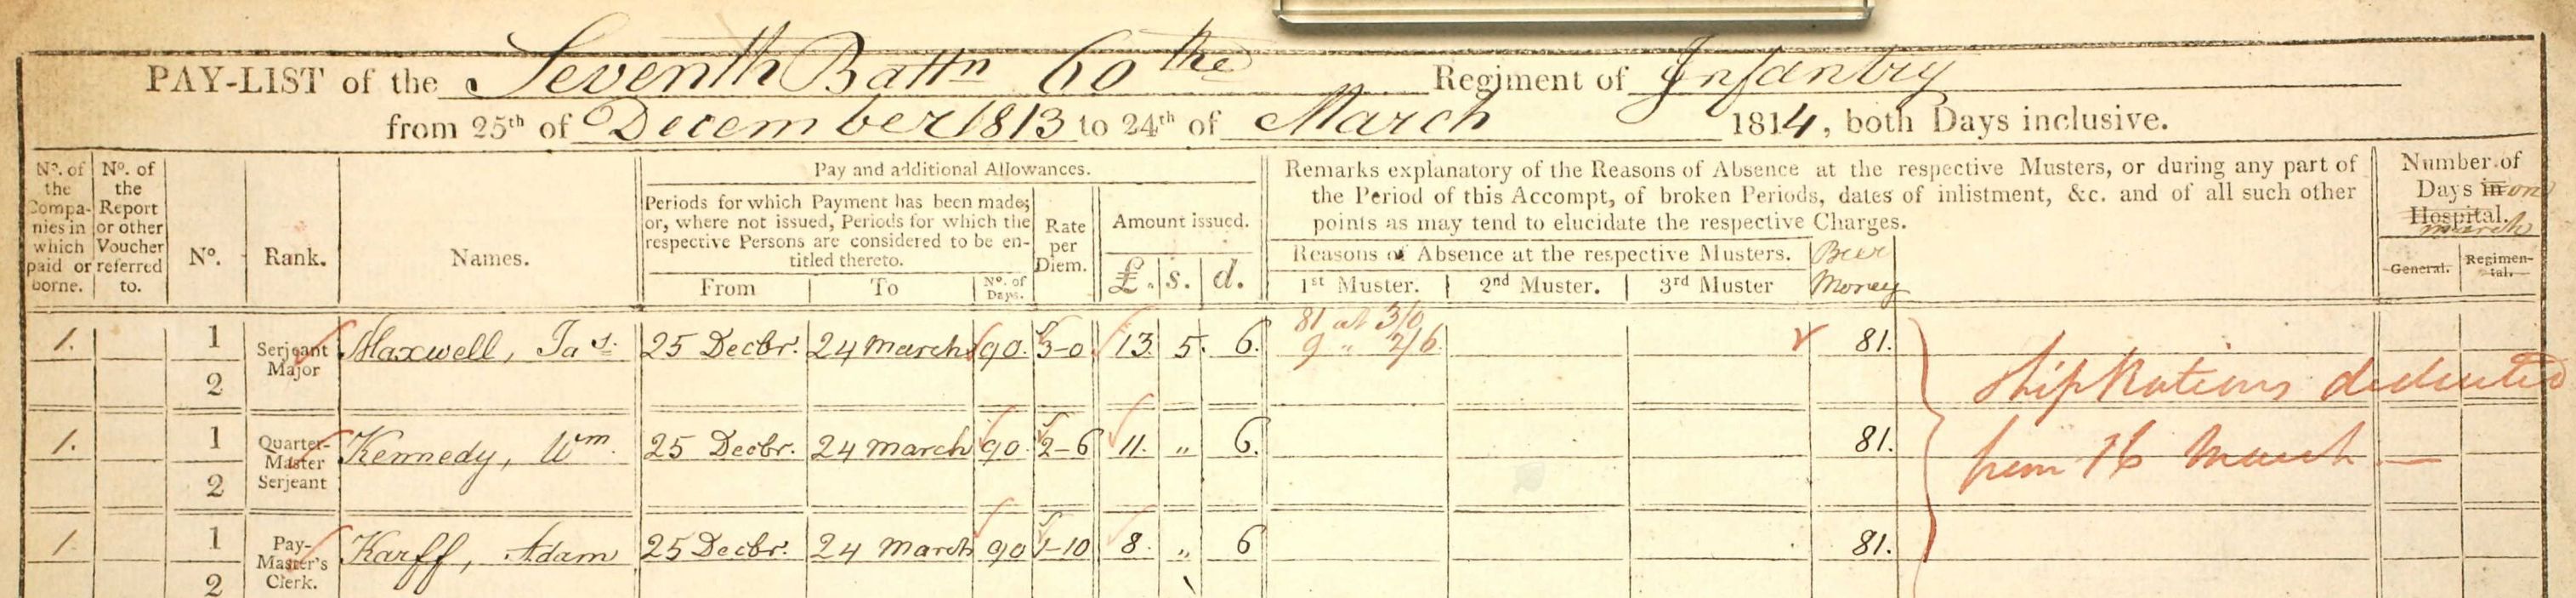 PAY-LIST of the Seventh Battn 60the Regiment of Infantry
from 25th of December 1813 to 24th of March 1814, both Days inclusive.
No. of the Compa-nies in which paid or borne.
No. of the Report or other Voucher referred to.
No.
Rank.
Names.
Pay and additional Allowances.
Periods for which Payment has been made; or, where not issued, Periods for which the respective Persons are considered to be en-titled thereto.
From
To
No. of Days.
Rate per Diem.
Amount issued.
£. s. d.
Remarks explanatory of the Reasons of Absence at the respective Musters, or during any part of
the Period of this Accompt, of broken Periods, dates of inlistment, &c. and of all such other
points as may tend to elucidate the respective Charges.
Reasons of Absence at the respective Musters.
1st Muster. 2nd Muster. 3rd Muster
Beer Money
Number of
Days in on
Hospital.
march
General. Regimen-tal.
81 at 3/0
1. 1 Serjeant Major Maxwell, Jas. 25 Decbr. 24 March 90. 3-0 13. 5. 6. 9 " 2/6 81.
2
Ship Rations deducted
1. 1 Quarter-Master Serjeant Kennedy, Wm. 25 Decbr. 24 March 90. 2-6 11. " 6. 81.
from 16 March
2
1. 1 Pay-Master's Clerk. Karff, Adam 25 Decbr. 24 March 90 1-10 8. " 6 81.
2